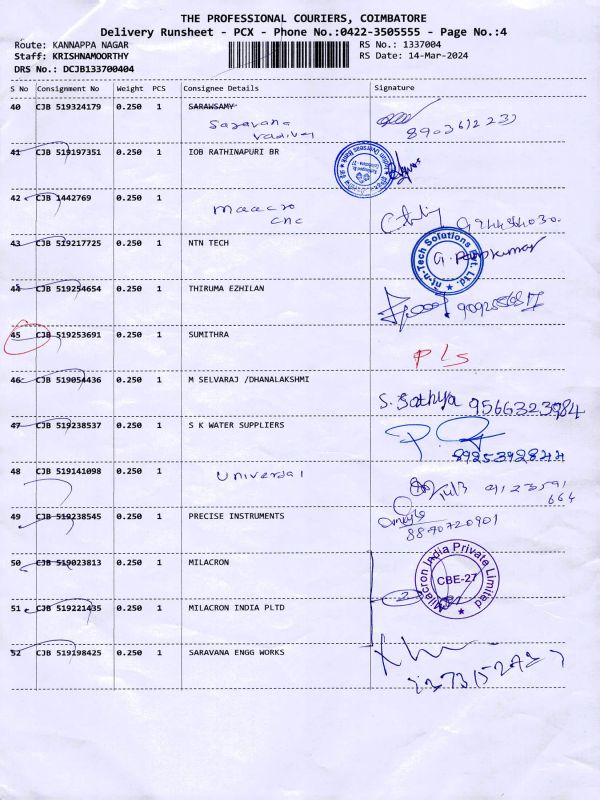 THE PROFESSIONAL COURIERS, COIMBATORE
Delivery Runsheet - PCX - Phone No.:0422-3505555 - Page No.:4
Route: KANNAPPA NAGAR
RS No.: 1337004
Staff: KRISHNAMOORTHY
RS Date: 14-Mar-2024
DRS No.: DCJB133700404
S No Consignment No Weight PCS Consignee Details Signature
40 CJB 519324179 0.250 1 SARAWSAMY
Saravana
41 CJB 519197351 0.250 1 IOB RATHINAPURI BR
42 CJB 1442769 0.250 1
maacro
cnc
43 CJB 519217725 0.250 1 NTN TECH
nt-n-Tech Solutions Pvt. Ltd.
44 CJB 519254654 0.250 1 THIRUMA EZHILAN
45 CJB 519253691 0.250 1 SUMITHRA
PLS
46 CJB 519054436 0.250 1 M SELVARAJ /DHANALAKSHMI
S. Sathya 9566323984
47 CJB 519238537 0.250 1 S K WATER SUPPLIERS
8925392844
48 CJB 519141098 0.250 1 Universal
9123591
664
49 CJB 519238545 0.250 1 PRECISE INSTRUMENTS
8870720901
50 CJB 519023813 0.250 1 MILACRON
Milacron India Private Limited
CBE-27
51 CJB 519221435 0.250 1 MILACRON INDIA PLTD
2
52 CJB 519198425 0.250 1 SARAVANA ENGG WORKS